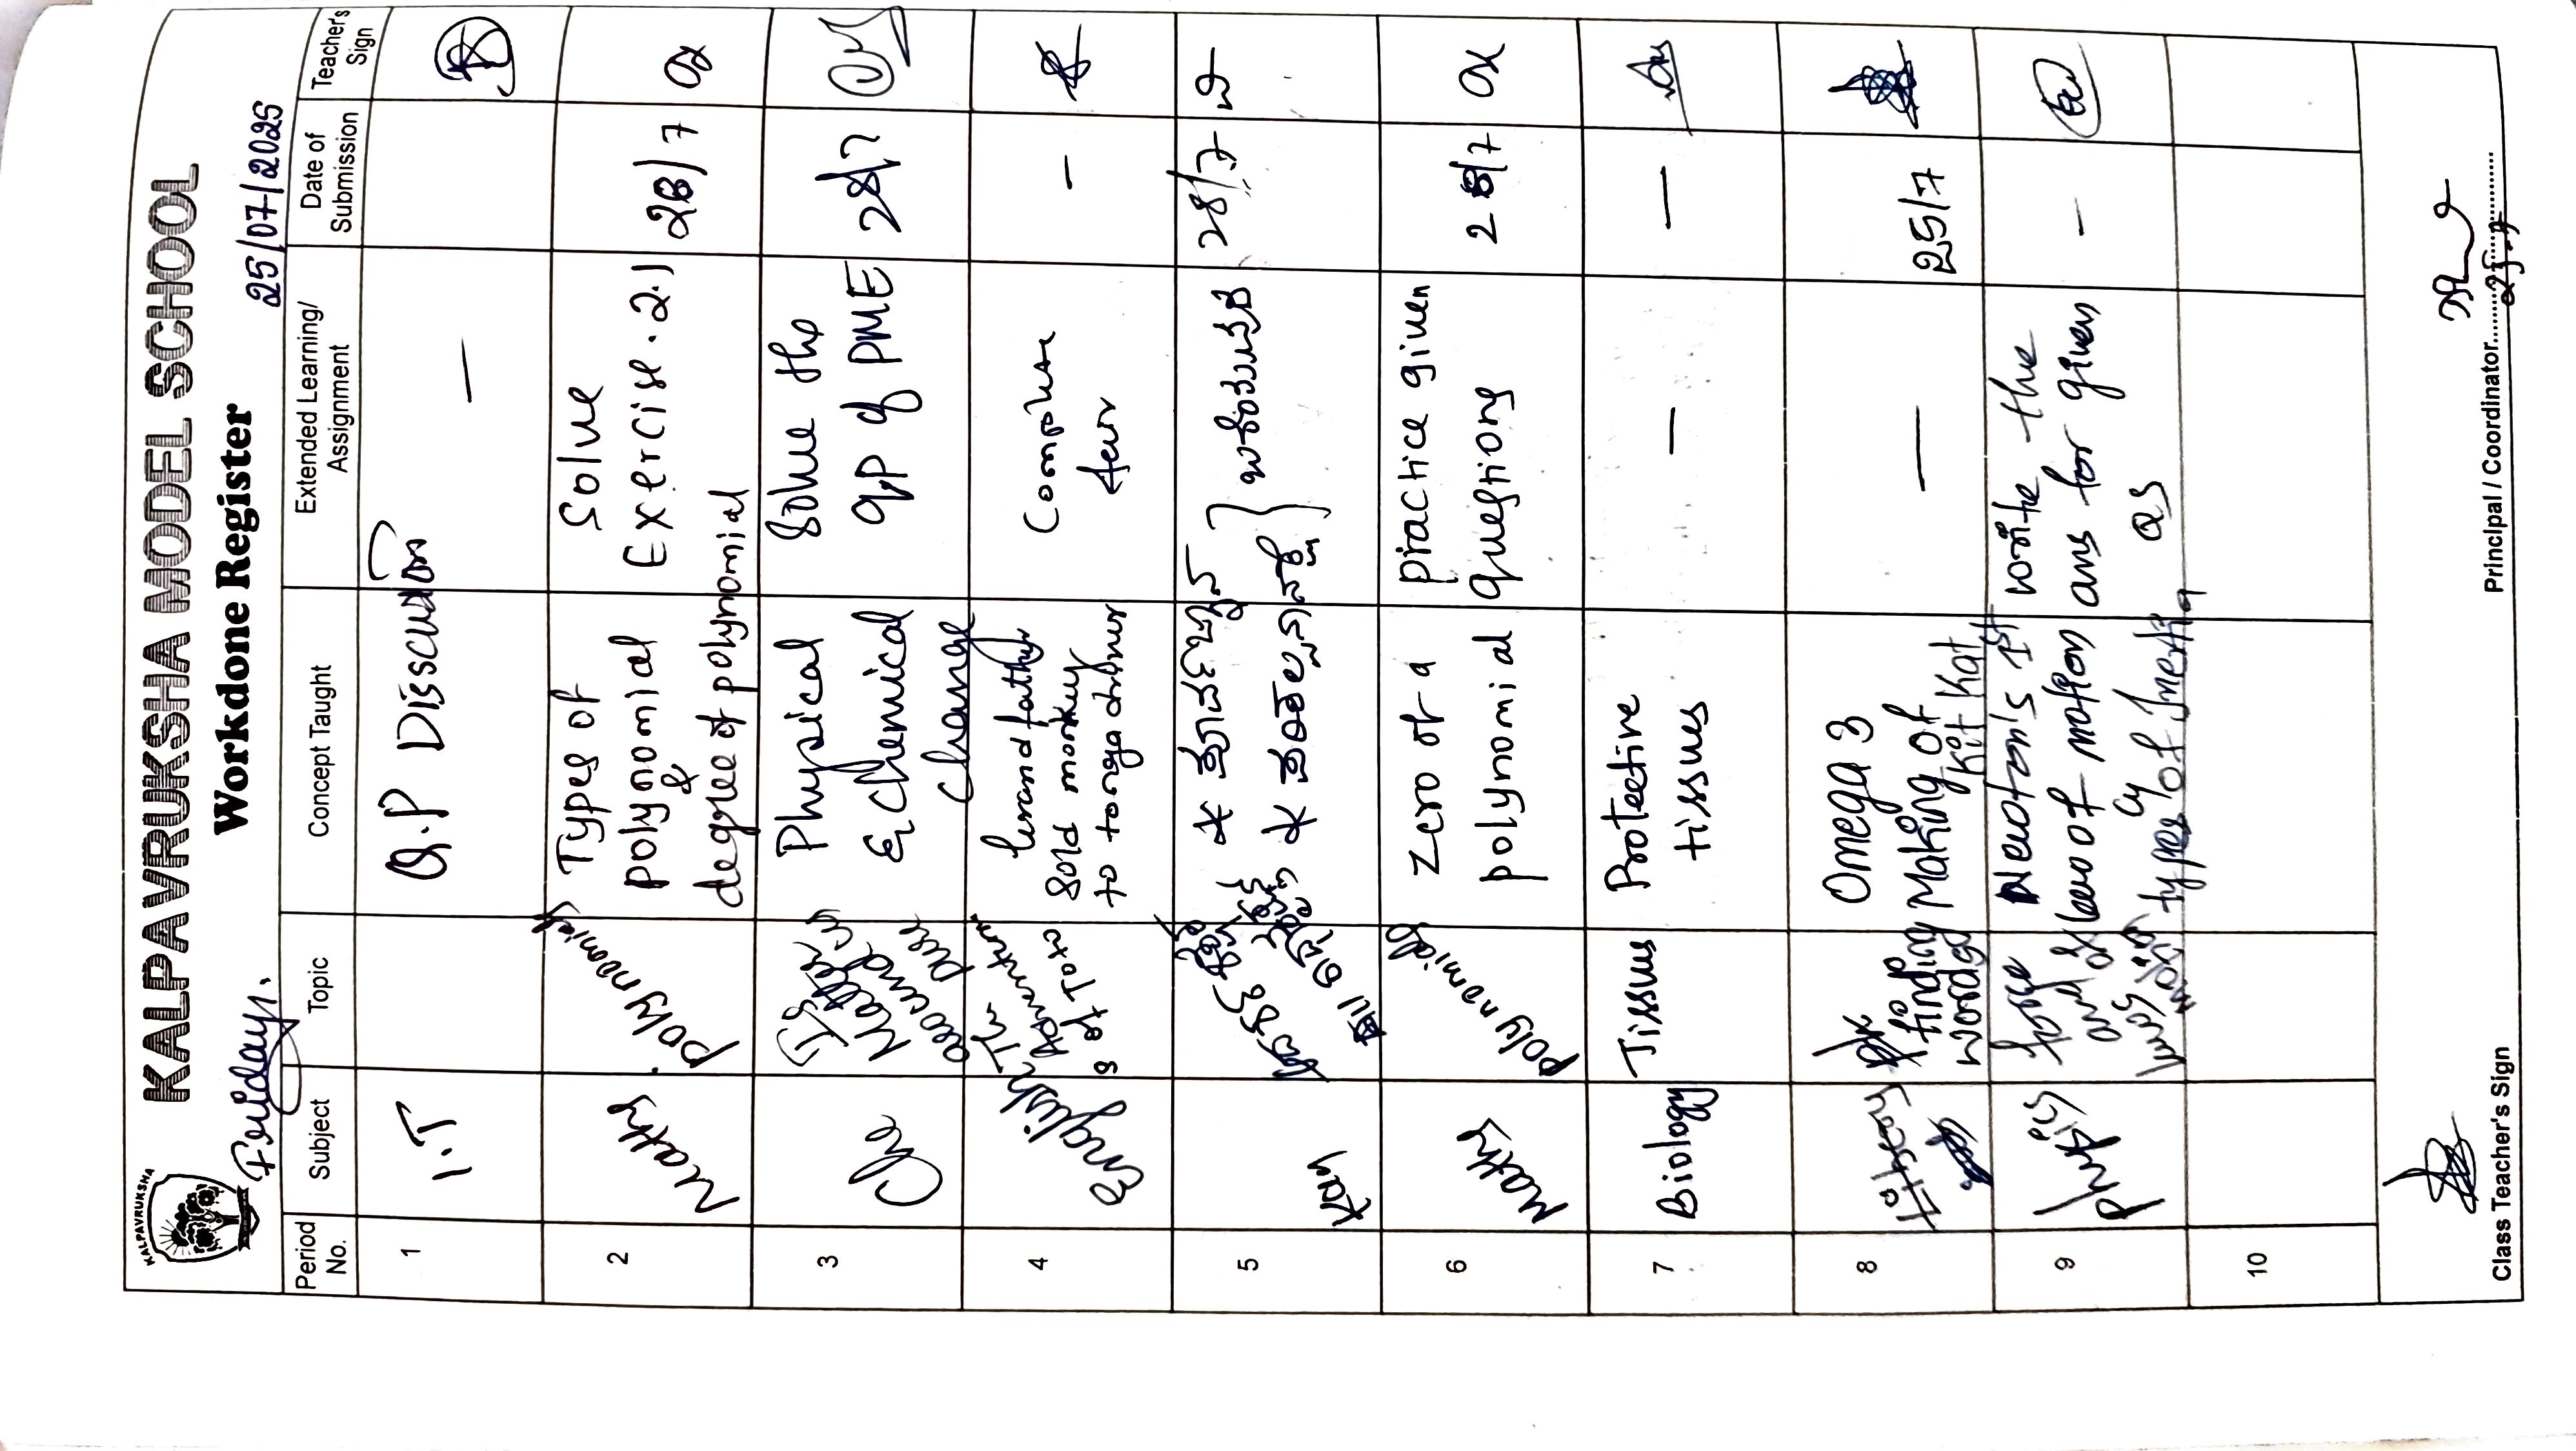 KALPAVRUKSHA
KALPAVRUKSHA MODEL SCHOOL
Workdone Register
Friday.
25/07/2025
Period No.
Subject
Topic
Concept Taught
Extended Learning/ Assignment
Date of Submission
Teacher's Sign
1
I.T
Q.P Discussion
—
2
Maths
Polynomials
Types of
polynomial
&
degree of polynomial
Solve
Exercise. 2.1
28/7
3
Che
Is Matter
around
Pure
Physical
& Chemical
change
Solve the
QP of PME
28/7
4
English
The
Adventure
s of Toto
Grandfather
sold monkey
to tonga driver
Complete
–
5
Kan
28/7
6
Maths
Polynomials
Zero of a
polynomial
practice given
questions
28/7
7
Biology
Tissus
Protective
tissues
—
—
8
finding
words
Omega 3
Making of
Kit Kat
—
25/7
9
Physics
force
and
laws of
motion
Newton's 1st
law of motion
types of Inertia
write the
ans for given
Qs
–
10
Class Teacher's Sign
Principal / Coordinator